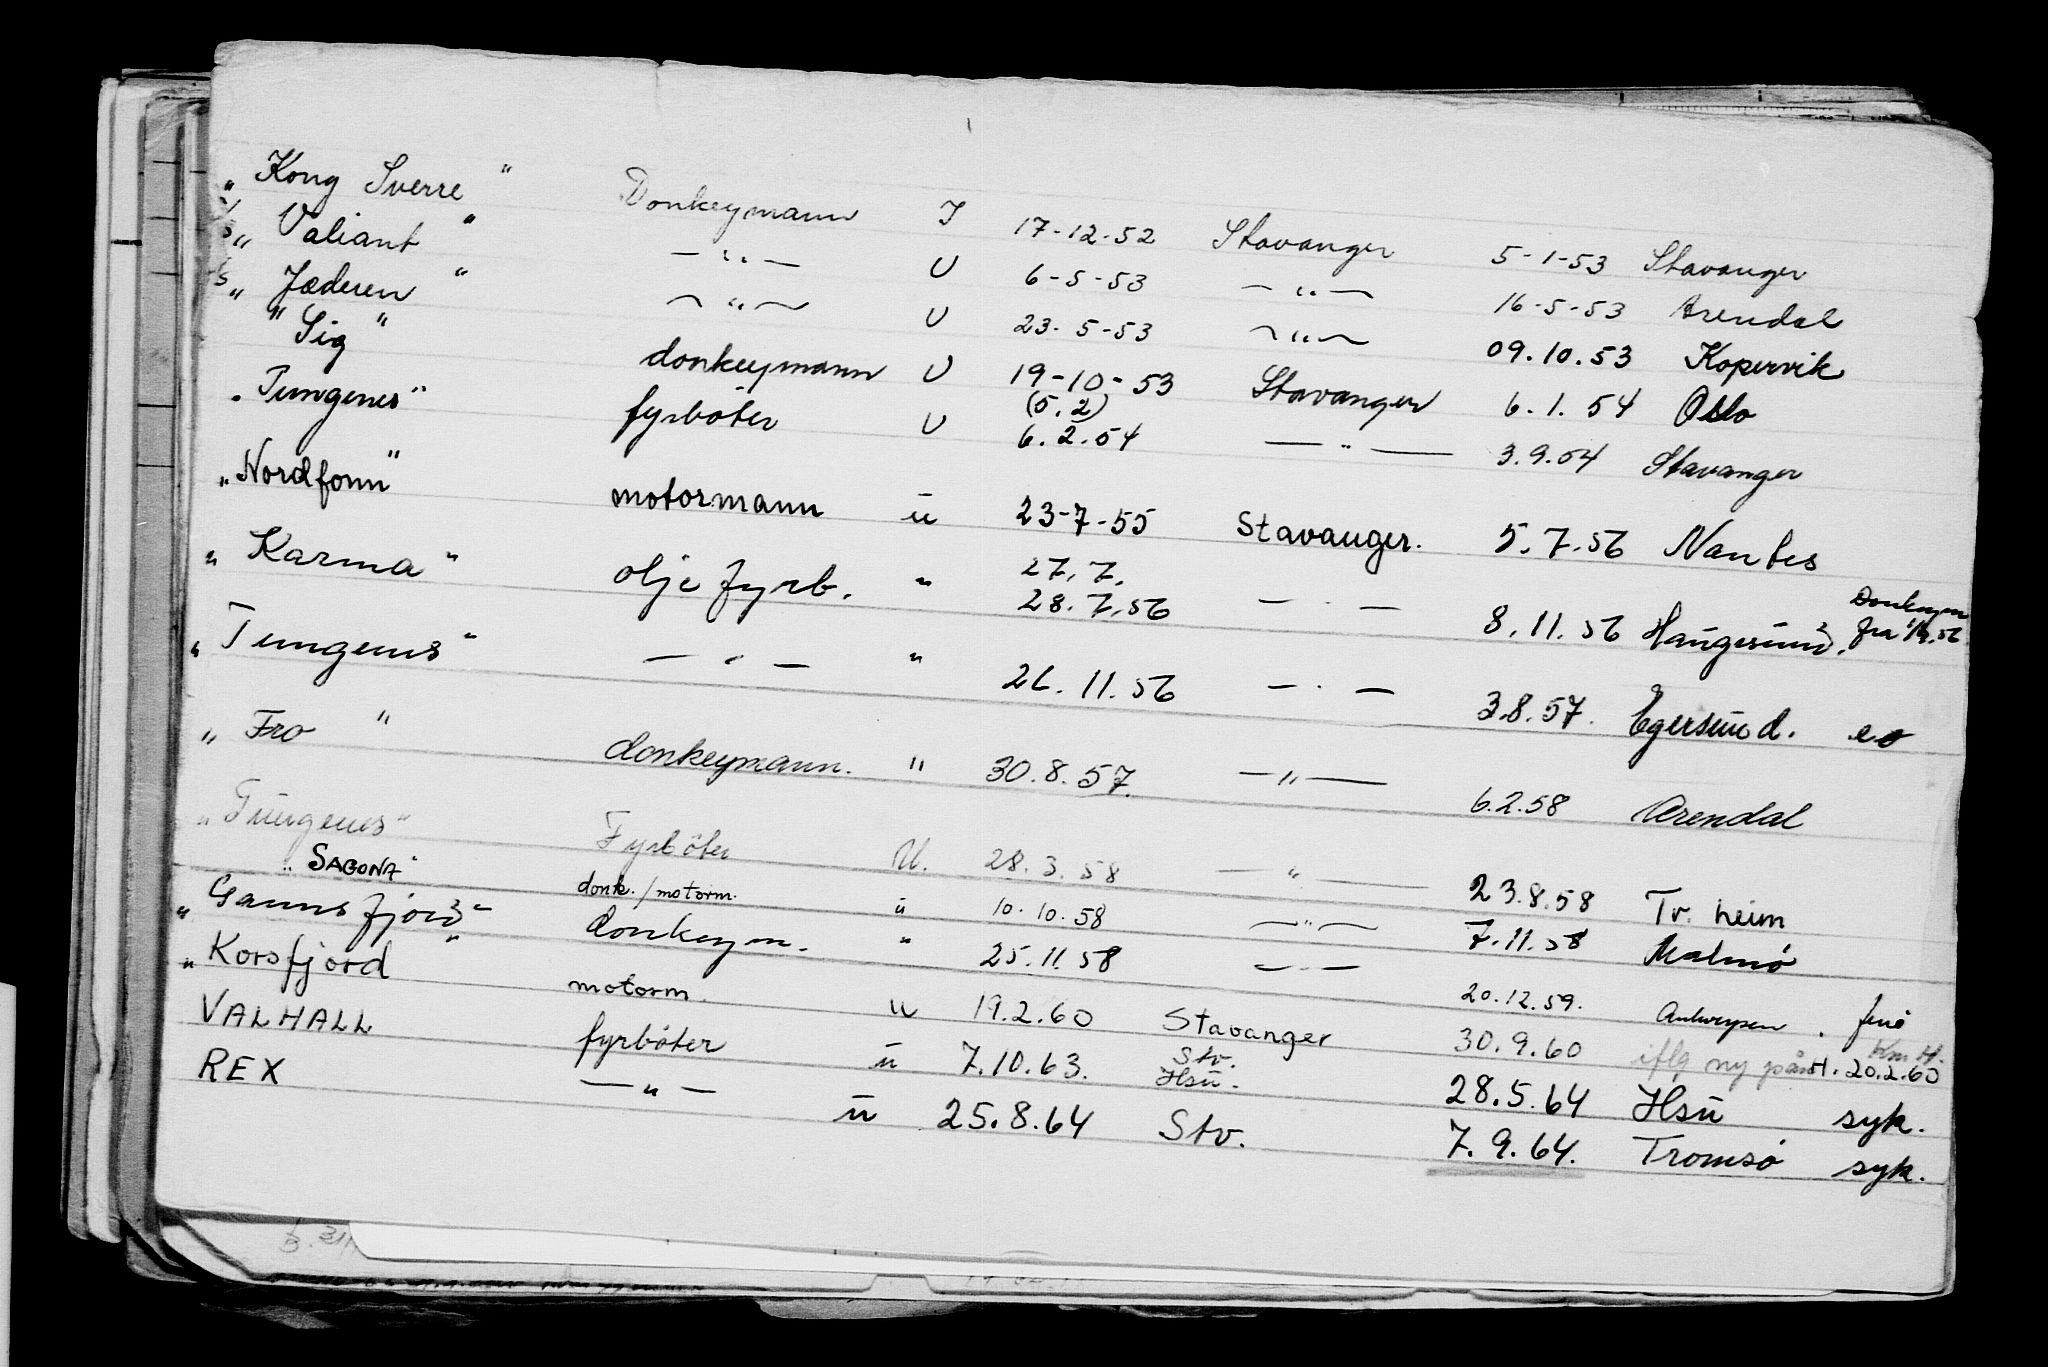 „Kong Sverre" Donkeymann I 17-12-52 Stavanger 5-1-53 Stavanger
„Valiant" —"— U 6-5-53 —"— 16-5-53 Arendal
„Jæderen" —"— U 23-5-53 —"— 09.10.53 Kopervik
"Sig" donkeymann U 19-10-53 Stavanger 6.1.54 Oslo
„Tungenes" fyrbøter U (5.2) 6.2.54 —"— 3.9.54 Stavanger
„Nordfonn" motormann u 23-7-55 Stavanger. 5.7.56 Nantes
„Karma" olje fyrb. " 27.7. 28.7.56 —"— 8.11.56 Haugesund. Donkeym fra
„Tungenes" —"— " 26.11.56 —"— 3.8.57. Egersund. eo
„Fro" donkeymann. " 30.8.57. —"— 6.2.58 Arendal
„Tungenes" Fyrbøter U. 28.3.58 —"— 23.8.58 Tr. heim
„SAGONA" donk./motorm. u 10.10.58 —"— 7.11.58 Malmø
„Gannsfjord" donkeym. " 25.11.58 —"— 20.12.59. Antwerpen.
„Korsfjord" motorm. u 19.2.60 Stavanger 30.9.60 iflg ny påm. 20.2.60
VALHALL fyrbøter u 7.10.63. Stv. Hsu. 28.5.64 Hsu syk.
REX —"— u 25.8.64 Stv. 7.9.64. Tromsø syk.